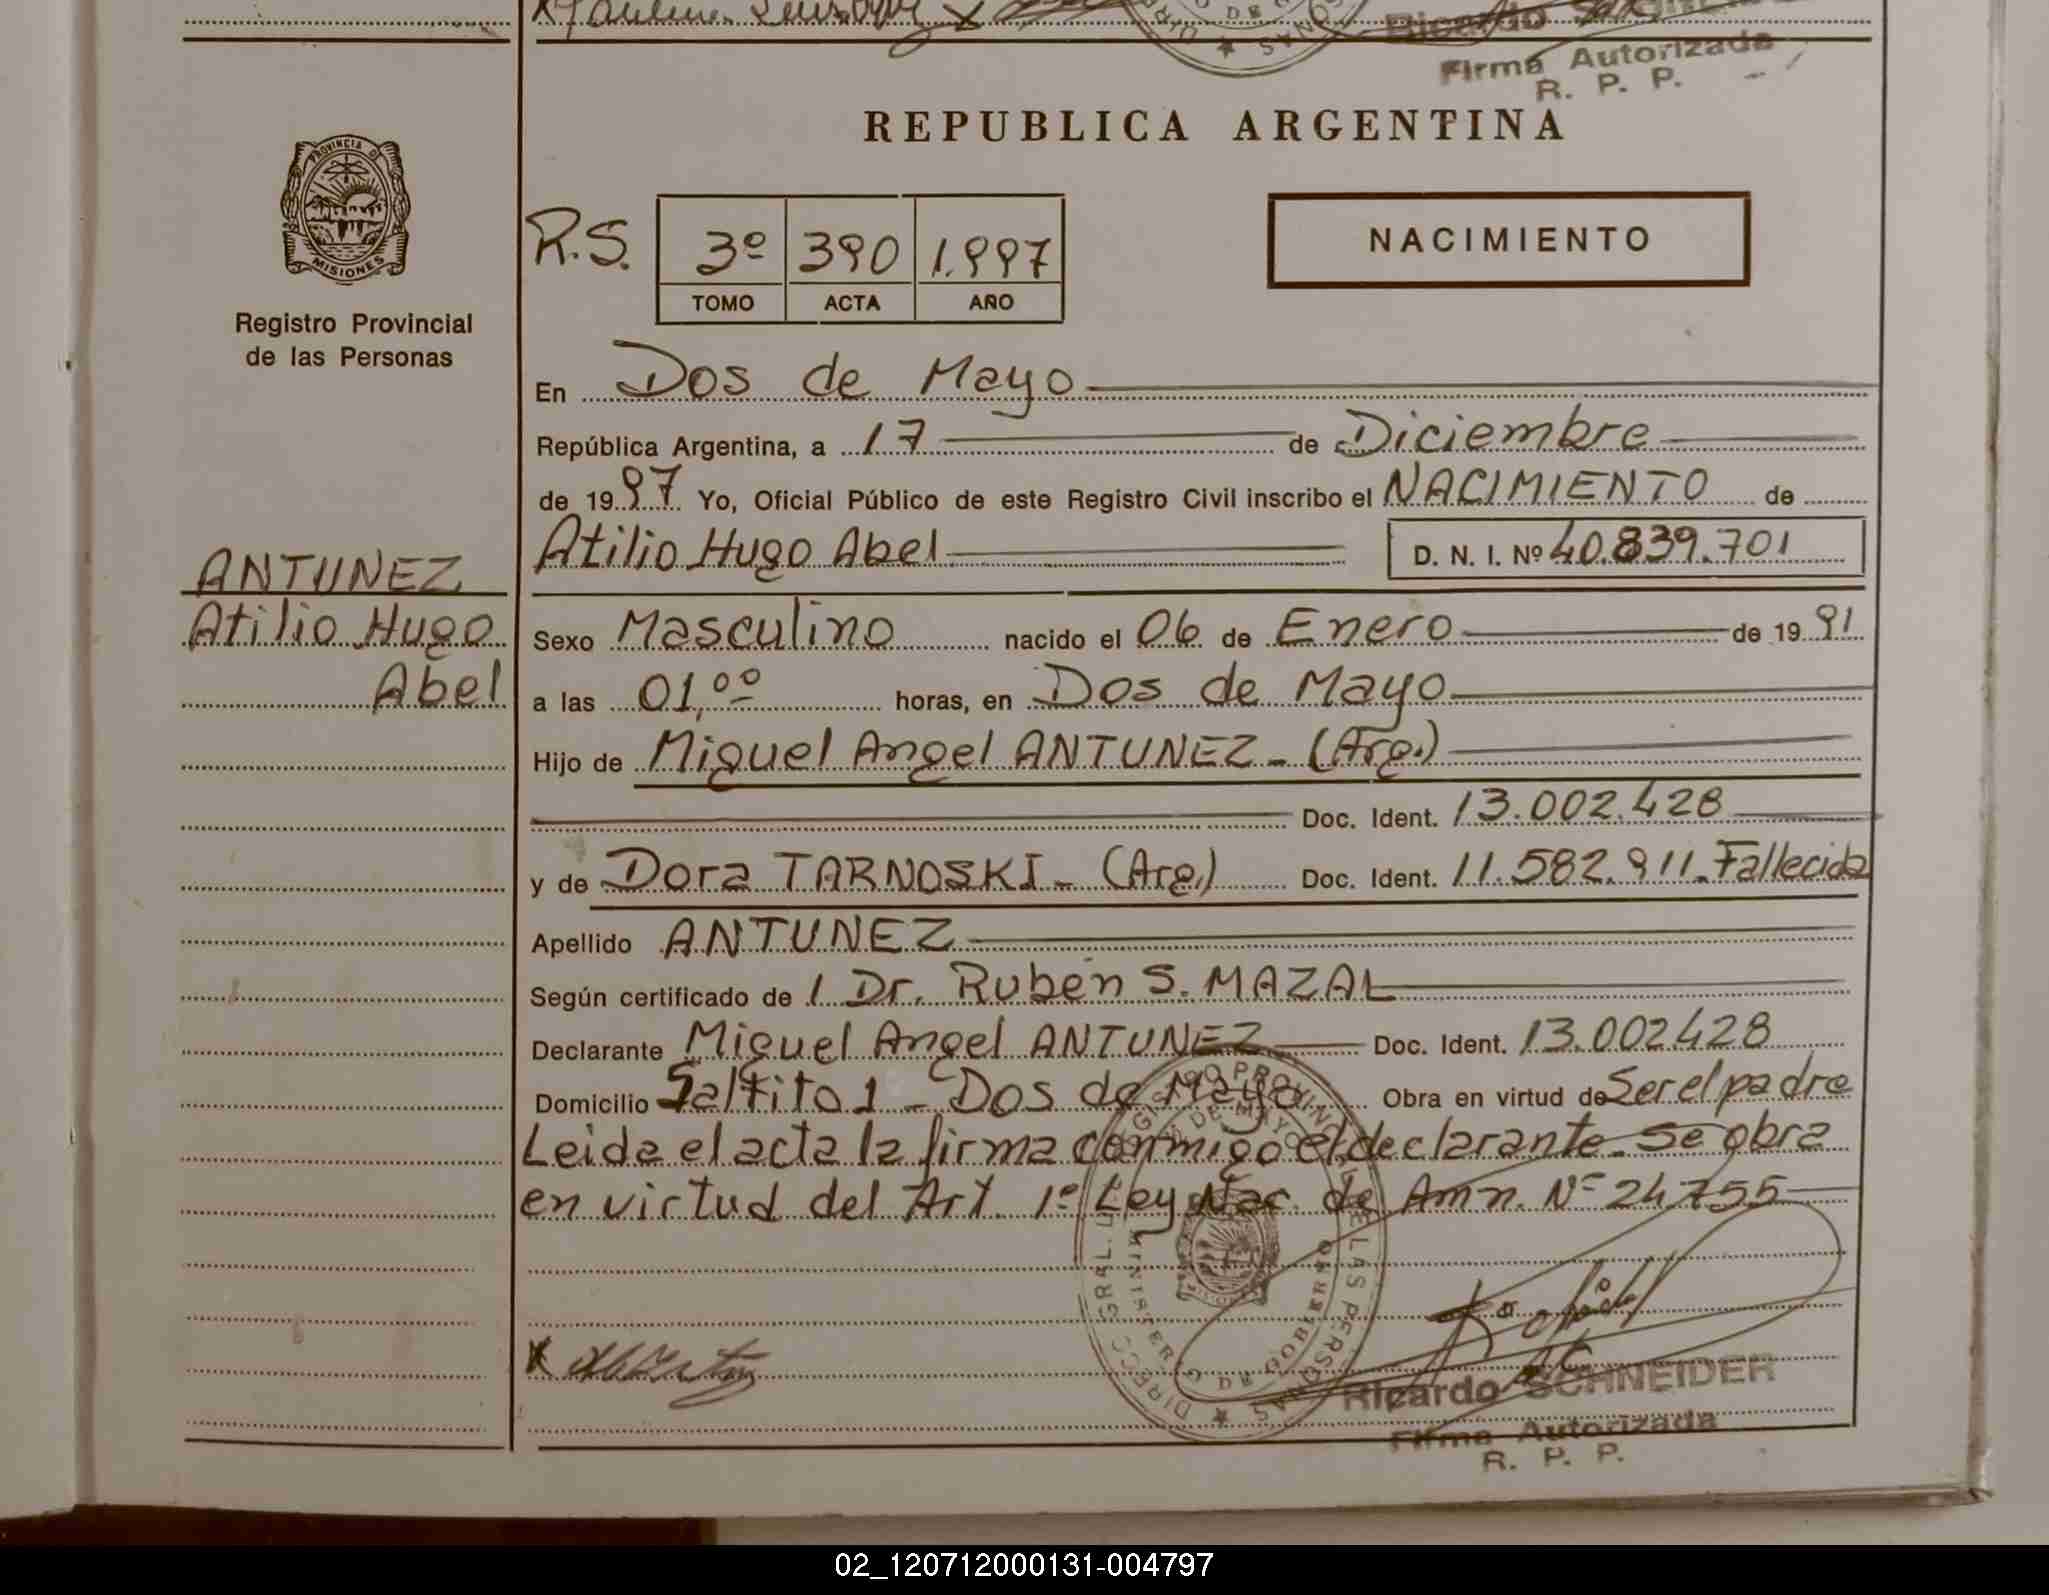 Firma Autorizada
R. P. P.
REPUBLICA ARGENTINA
PROVINCIA DE
MISIONES
Registro Provincial
de las Personas
R.S. 3º 390 1.997
TOMO ACTA AÑO
NACIMIENTO
En Dos de Mayo
República Argentina, a 17 de Diciembre
de 1997 Yo, Oficial Público de este Registro Civil inscribo el NACIMIENTO de
Atilio Hugo Abel D. N. I. Nº 40.839.701
ANTUNEZ
Atilio Hugo
Abel
Sexo Masculino nacido el 06 de Enero de 1991
a las 01,ºº horas, en Dos de Mayo
Hijo de Miguel Angel ANTUNEZ - (Arg.)
Doc. Ident. 13.002.428
y de Dora TARNOSKI - (Arg.) Doc. Ident. 11.582.911. Fallecida
Apellido ANTUNEZ
Según certificado de 1 Dr. Rubén S. MAZAL
Declarante Miguel Angel ANTUNEZ Doc. Ident. 13.002428
Domicilio Saltito 1 - Dos de Mayo Obra en virtud de Ser el padre
Leida el acta la firma conmigo el declarante. Se obra
en virtud del Art. 1º Ley Nac. de Amn. Nº 24755
Ricardo SCHNEIDER
Firma Autorizada
R. P. P.
02_120712000131-004797